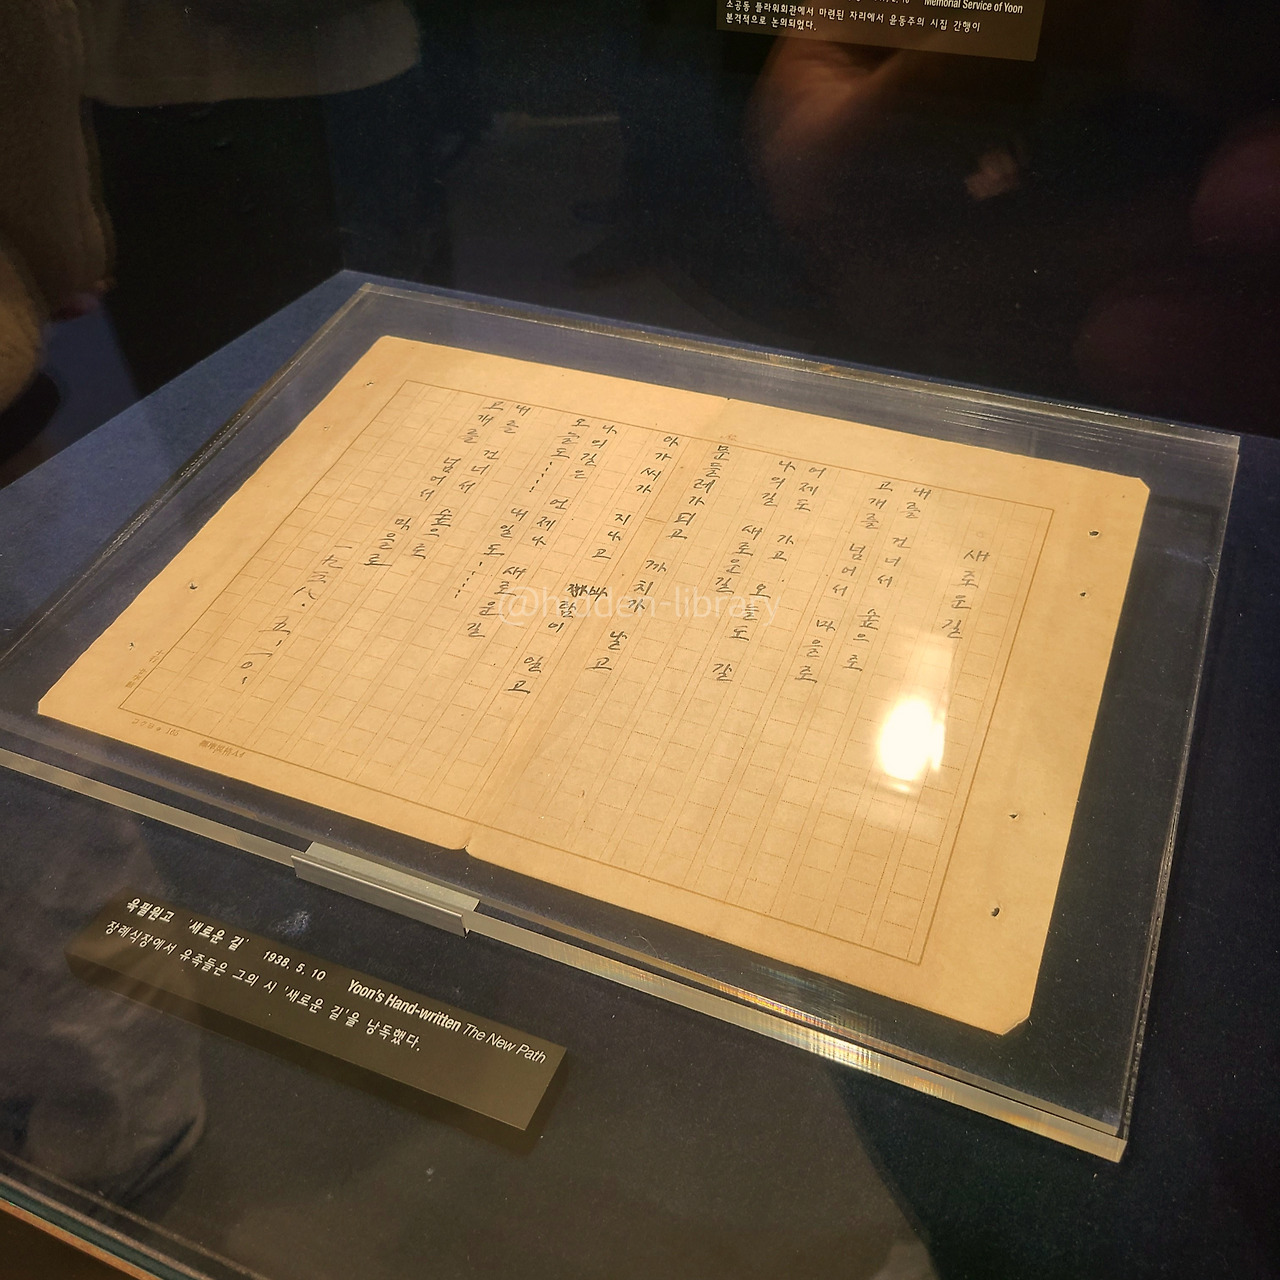 Memorial Service of Yoon
소공동 플라워회관에서 마련된 자리에서 윤동주의 시집 간행이
본격적으로 논의되었다.
새로운길
내를 건너서 숲으로
고개를 넘어서 마을로
어제도 가고 오늘도 갈
나의길 새로운길
문들레가 피고 까치가 날고
아가씨가 지나고 바람이 일고
나의길은 언제나 새로운길
오늘도…… 내일도……
내를 건너서 숲으로
고개를 넘어서 마을로
一九三八·五·一〇、
標準規格A4
@hidden-library
육필원고 '새로운 길' 1938. 5. 10 Yoon's Hand-written The New Path
장례식장에서 유족들은 그의 시 '새로운 길'을 낭독했다.